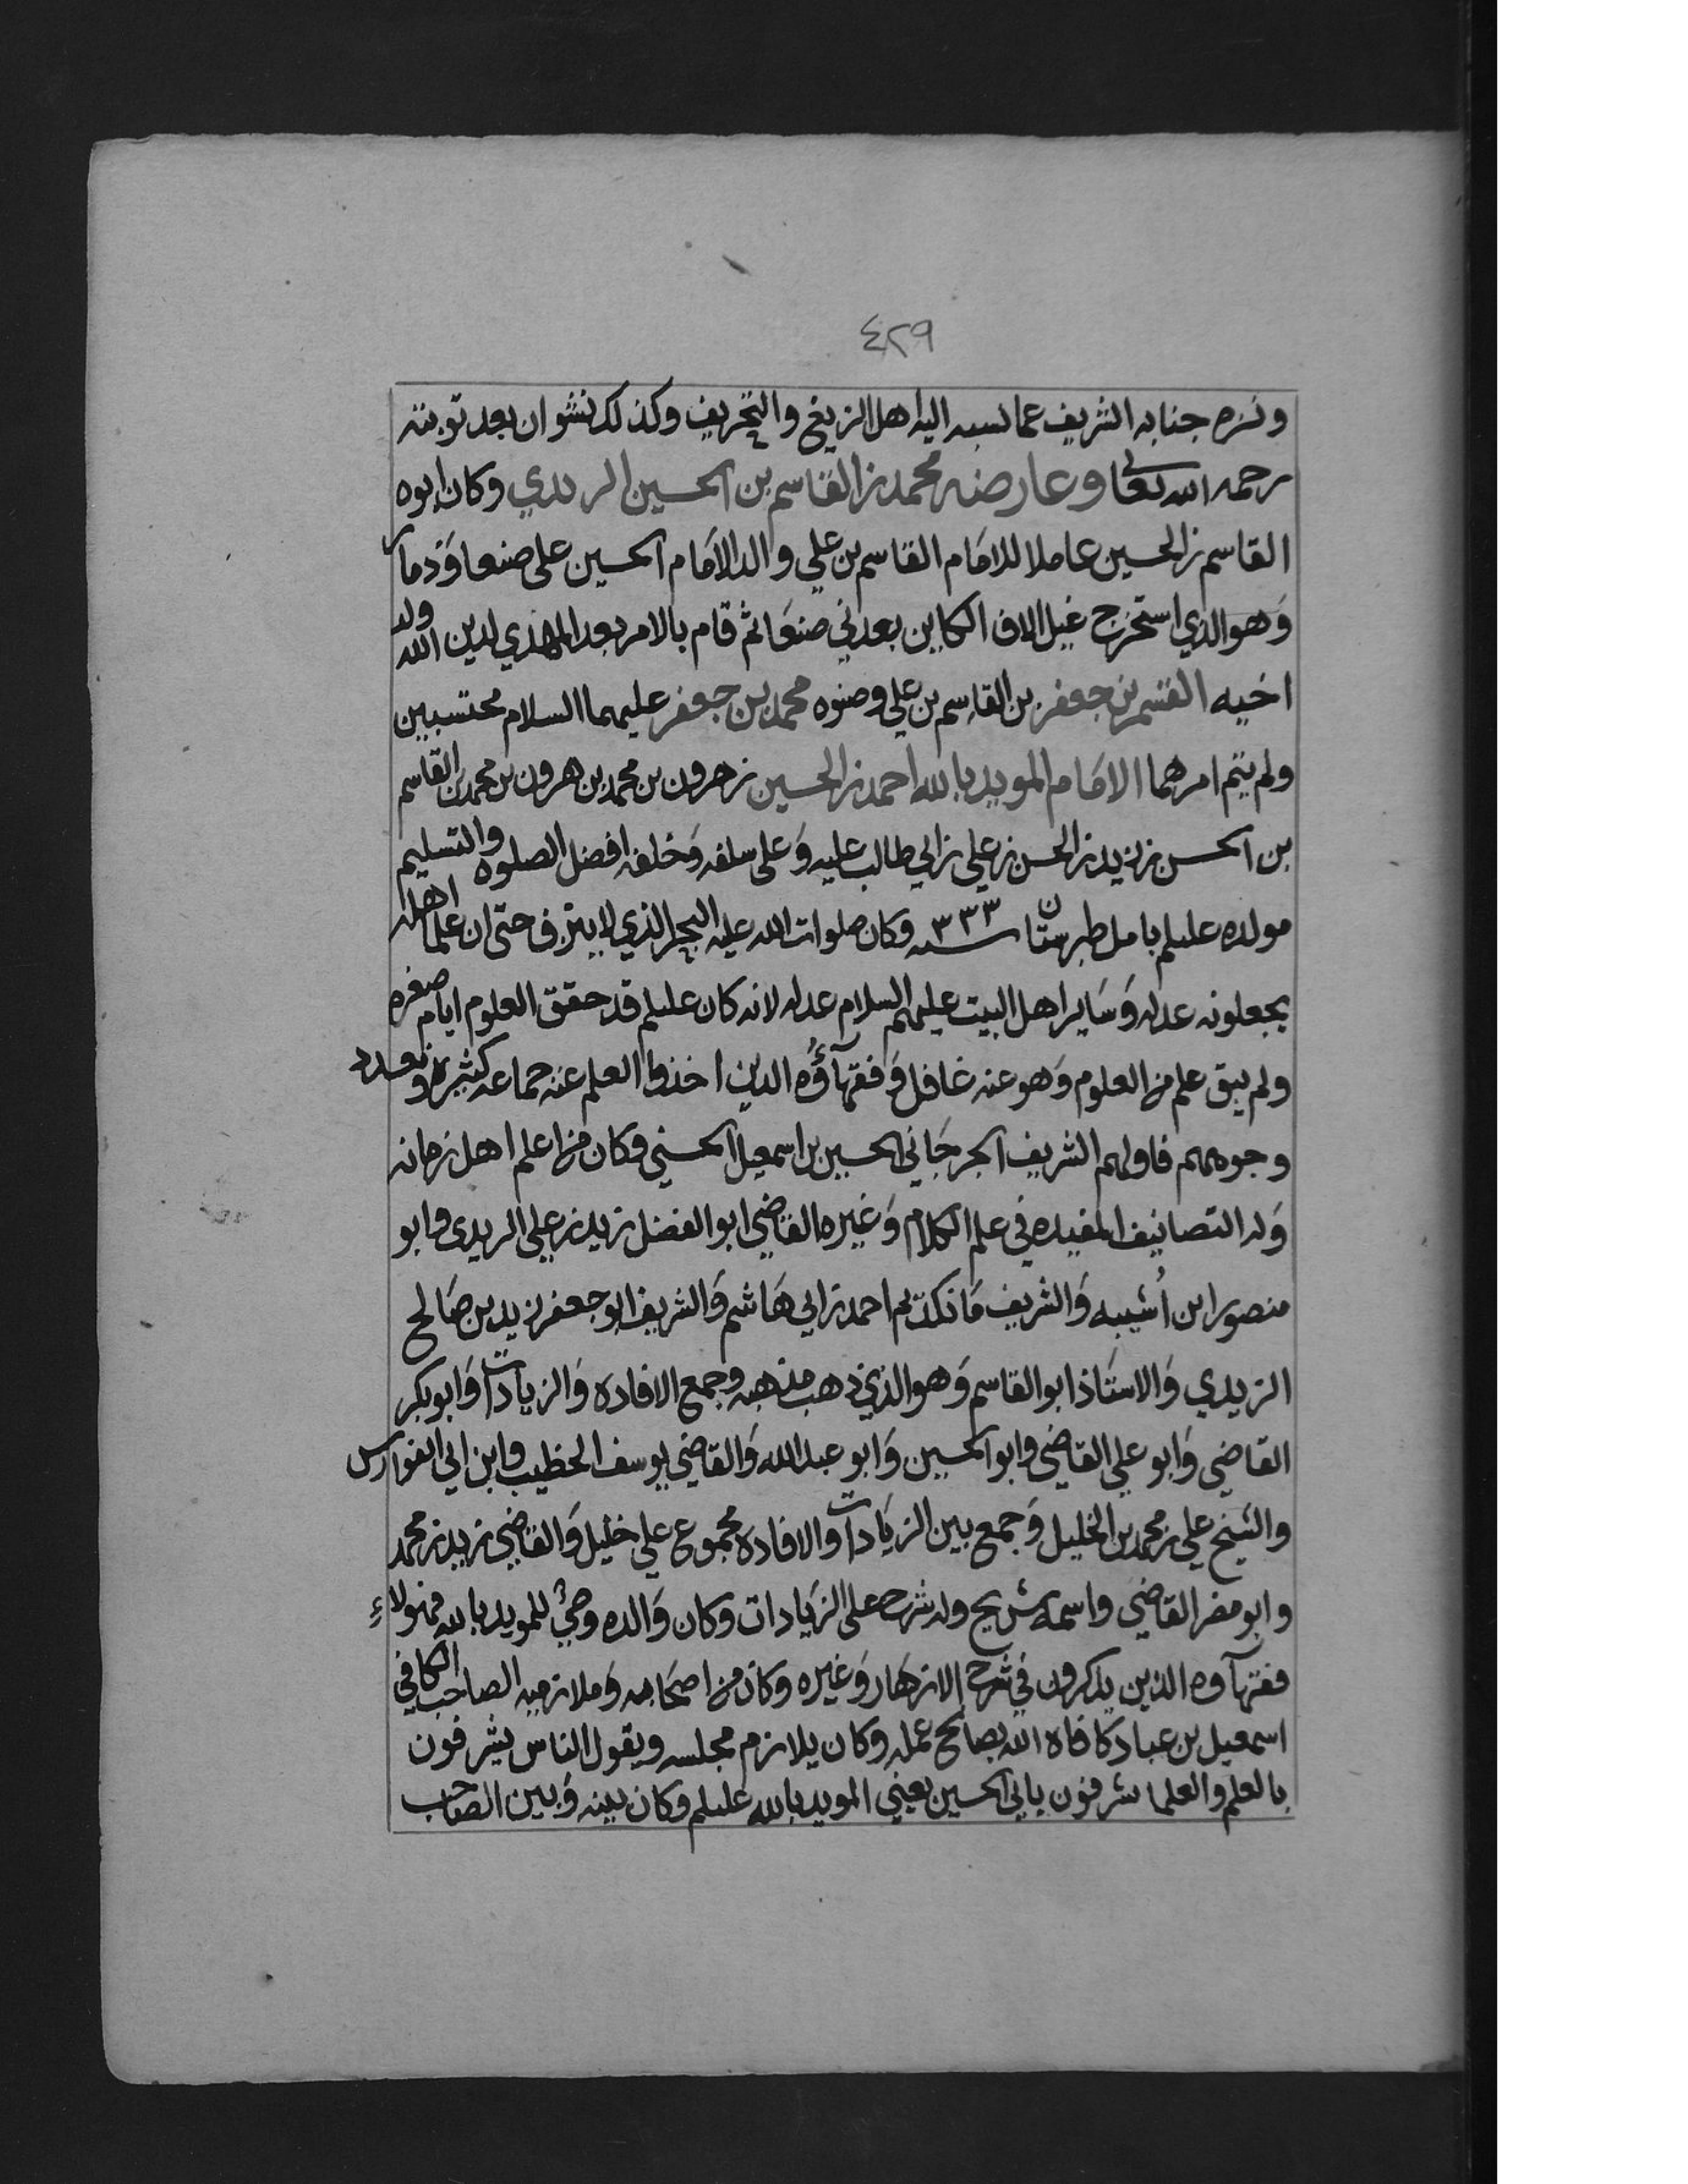 ٤٢٩
ونزه جنابه الشريف عما نسبه اليه اهل الزيغ والتحريف وكذلك نشوان بعد توبته
رحمه الله تعالى وعارضه محمد بن القاسم بن الحسين الزيدي وكان ابوه
القاسم بن الحسين عاملا للامام القاسم بن علي والد الامام الحسين على صنعا وذمار
وهو الذي استخرج غيل الاف الكاين بعدني صنعا ثم قام بالامر بعد المهدي لدين الله ولد
اخيه القسم بن جعفر بن القاسم بن علي وصنوه محمد بن جعفر عليهما السلام محتسبين
ولم يتم امرهما الامام المويد بالله احمد بن الحسين بن هرون بن محمد بن هرون بن محمد بن القاسم
بن الحسن بن زيد بن الحسن بن علي بن ابي طالب عليه وعلى سلفه وخلفه افضل الصلوه والتسليم
مولده عليلم بامل طبرستان سنه ٣٣٣ وكان صلوات الله عليه البحر الذي لا ينزف حتى ان علما اهله
يجعلونه عدله وساير اهل البيت عليهم السلام عدله لانه كان عليلم قد حقق العلوم ايام صغره
ولم يبق علم من العلوم وهو عنه غافل وفقهآؤه الذين اخذوا العلم عنه جماعه كثيره ونعدد
وجوههم فاولهم الشريف الجرجاني الحسين بن اسمعيل الحسني وكان من اعلم اهل زمانه
وله التصانيف المفيده في علم الكلام وغيره القاضي ابو الفضل زيد بن علي الزيدي وابو
منصور ابن اُشيبه والشريف مانكديم احمد بن ابي هاشم والشريف ابو جعفر زيد بن صالح
الزيدي والاستاذ ابو القاسم وهو الذي ذهب مذهبه وجمع الافاده والزيادات وابو بكر
القاضي وابو علي القاضي وابو الحسين وابو عبد الله والقاضي يوسف الخطيب وابن ابي الفوارس
والشيخ علي بن محمد بن الخليل وجمع بين الزيادات والافاده مجموع علي خليل والقاضي زيد بن محمد
وابو مضر القاضي واسمه شريح وله شرح على الزيادات وكان والده وصي للمويد بالله فهولاء
فقهآوه الذين يذكرون في شرح الازهار وغيره وكان من اصحابه وملازميه الصاحب الكافي
اسمعيل بن عباد كافاه الله بصالح عمله وكان يلازم مجلسه ويقول الناس يشرفون
بالعلم والعلما شرفون بابي الحسين يعني المويد بالله عليلم وكان بينه وبين الصاحب